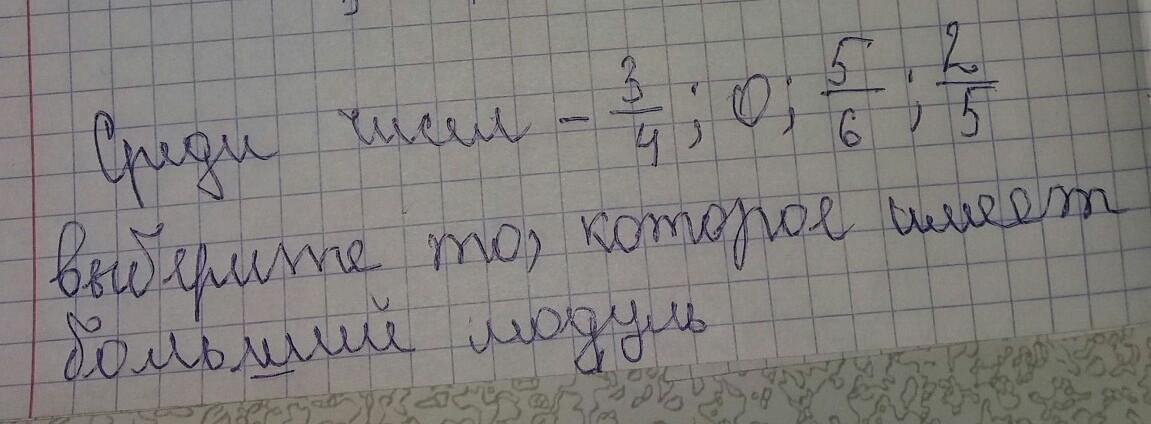 Среди чисел - 3/4; 0; 5/6; 2/5
выберите то, которое имеет
больший модуль